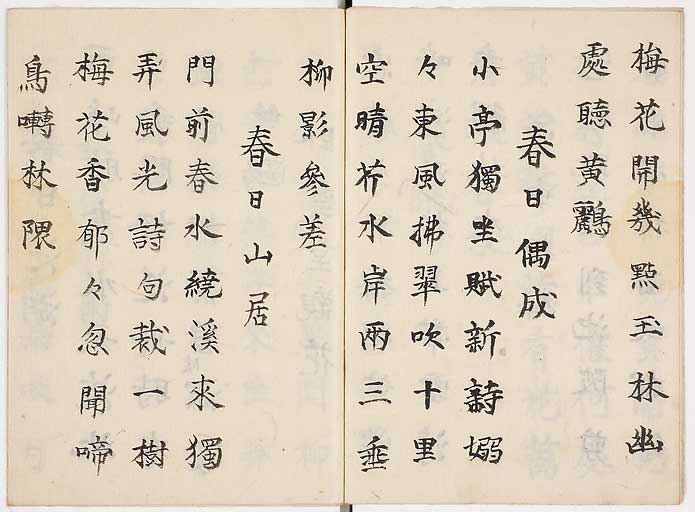 梅花開幾點玉林幽
處聽黄鸝
春日偶成
小亭獨坐賦新詩嫋
々東風拂翠吹十里
空晴芥水岸兩三垂
柳影參差
春日山居
門前春水繞溪來獨
弄風光詩句裁一樹
梅花香郁々忽聞啼
鳥囀林隈